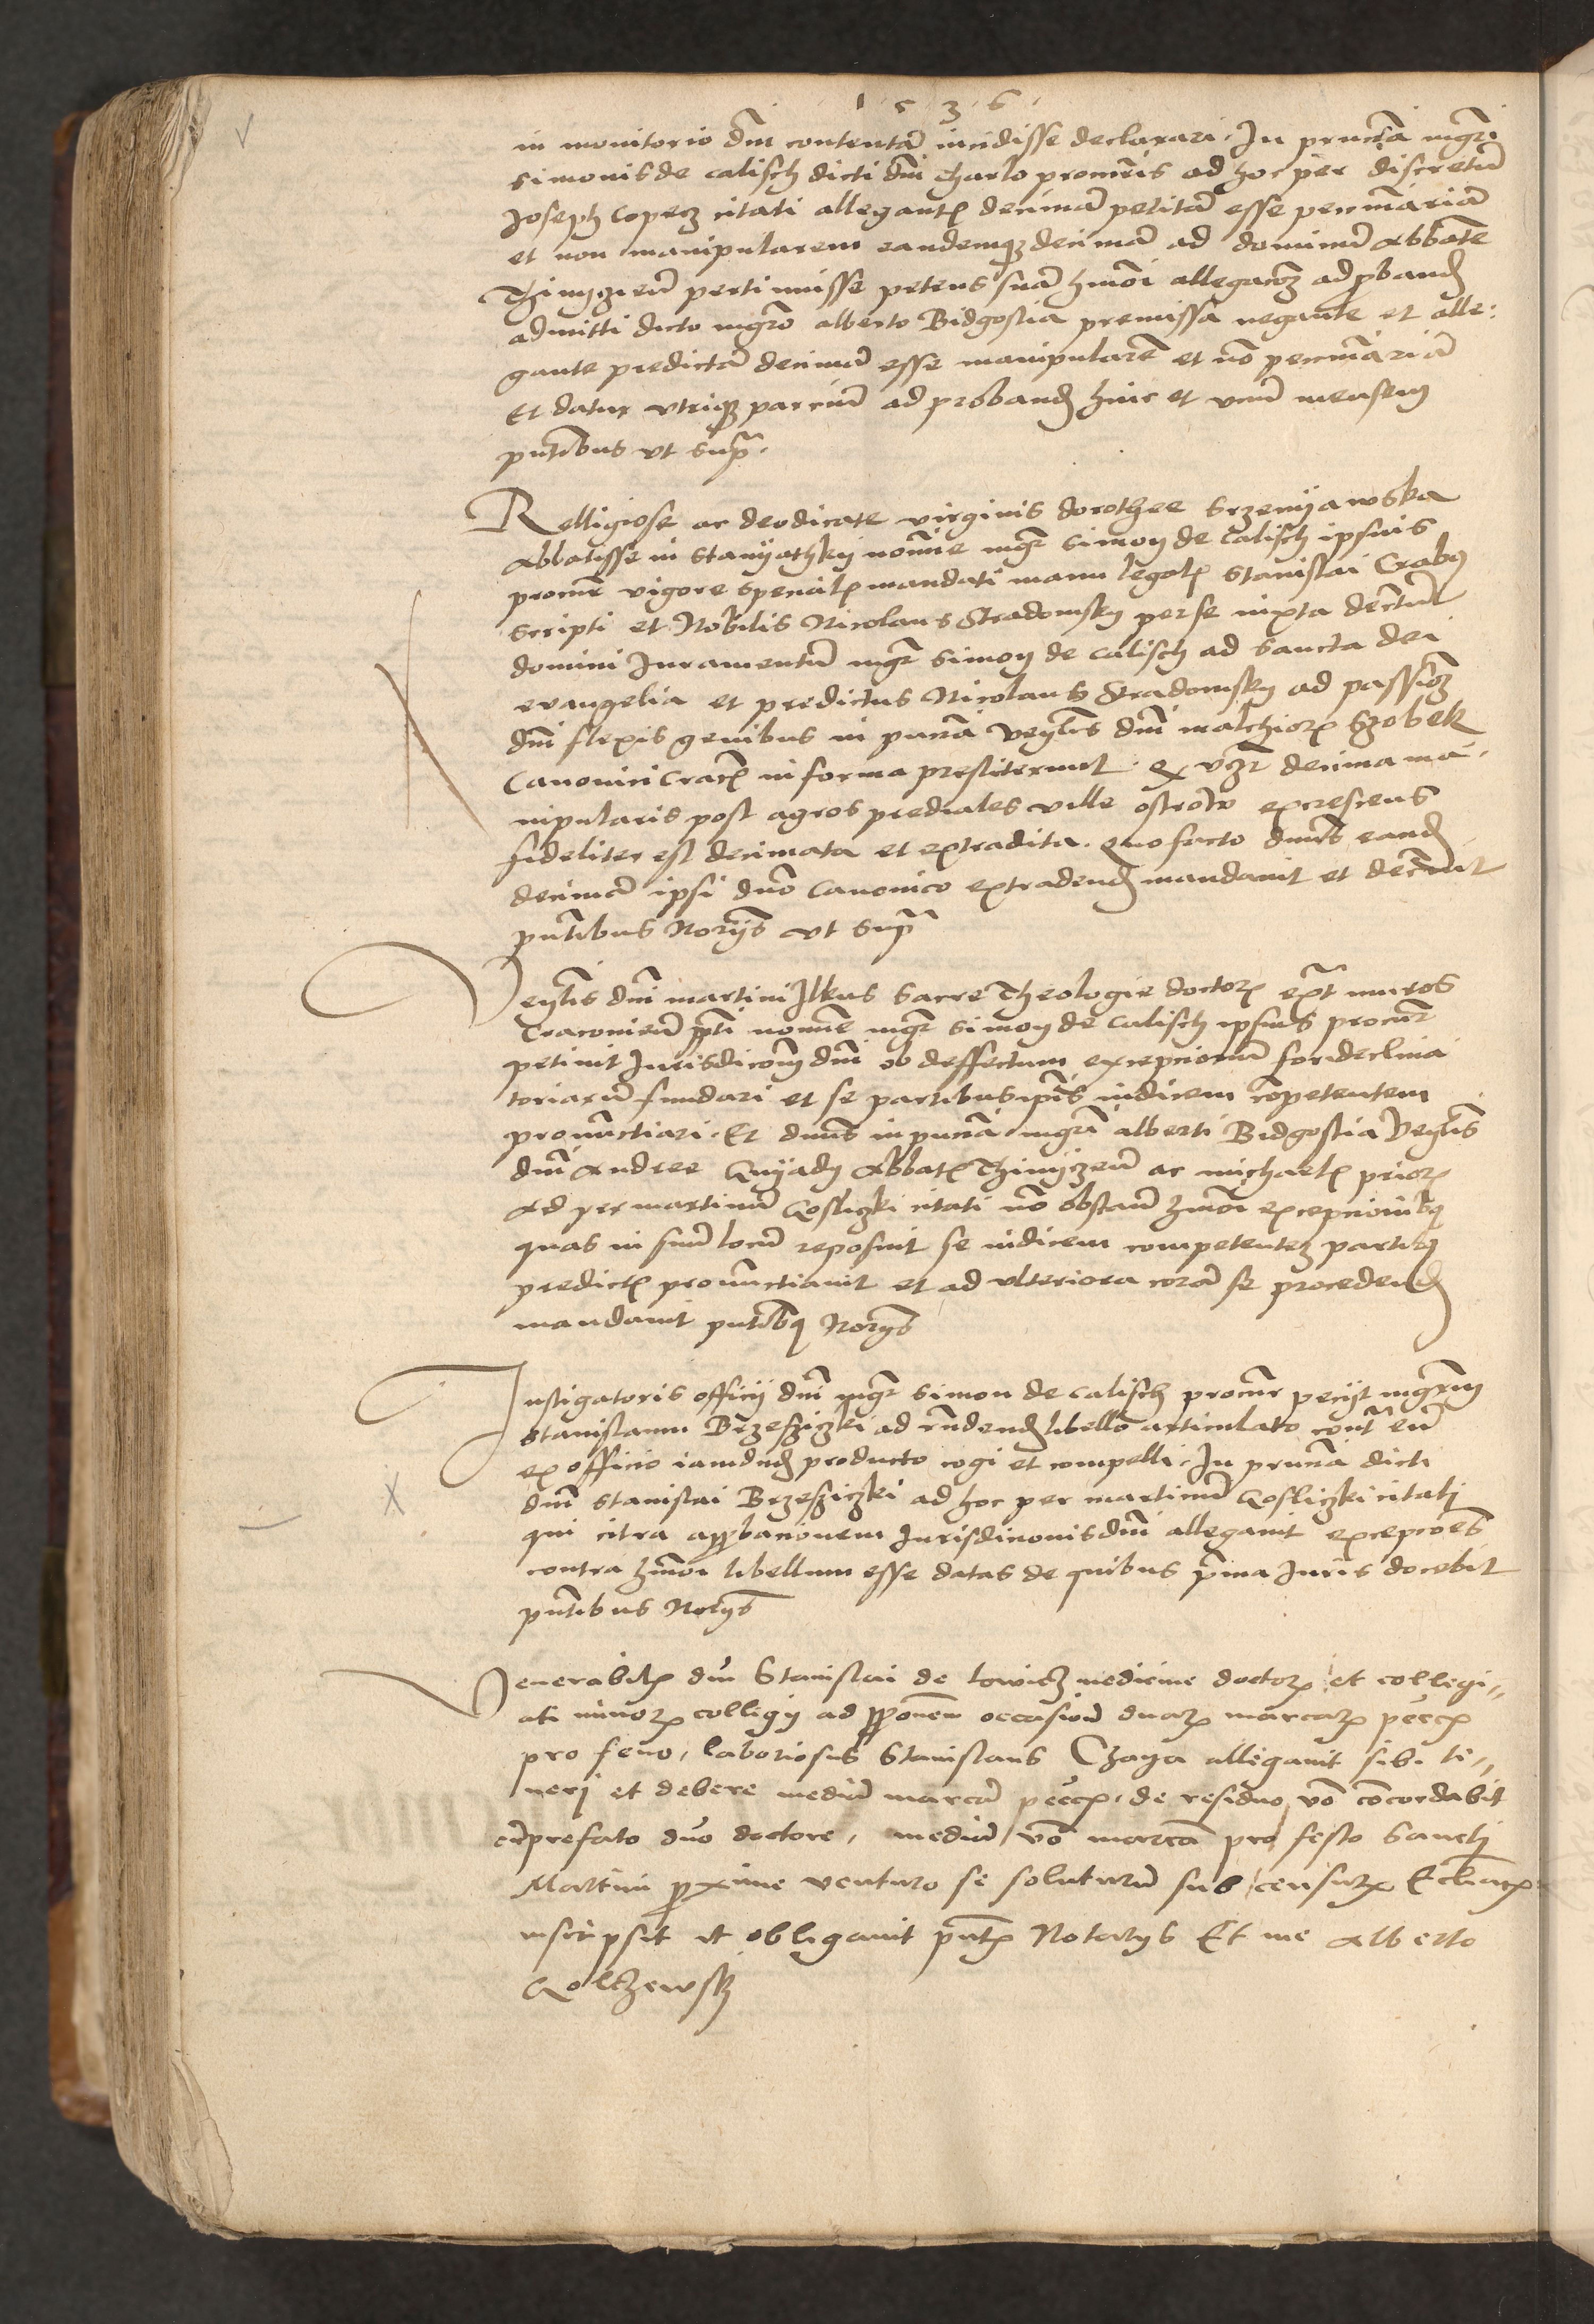 1536
in monitorio dni contentam incidisse declarari. In pncia mgri
Simonis de Calisch dicti dni Tharlo procuris ad hoc per discretum
Joseph Copecz citati allegantis decimam petitam esse pecuniariam
et non manipularem eandemque decimam ad dominum Abbatem
Thiniczieum pertinuisse petens suam hmoi allegacoem ad probandum
admitti dicto mgro alberto Bidgostia premissa negante et alle:
gante predictam decimam esse manipularem et non pecuniariam
Et datur utrique parcium ad probandum hinc et unum mensem
pntibus ut supra.
Relligiose ac deodicate virginis dorothee Srzenyawska
Abbatisse in Stanyathky nomine mgr Simon de Calisch ipsius
procur vigore specialis mandati manu legalis Stanislai Crabus
scripti et Nobilis Nicolaus Stradomsky per se iuxta decretum
domini Juramentum mgr Simon de Calisch ad sancta dei
evangelia et predictus Nicolaus Stradomsky ad passionem
dni flexis genibus in pncia Venlis dni Malchioris Szobek
Canonici Cracovien in forma prestiterunt. Quia decima ma-
nipularis post agros prediales ville ostrow excrescens
fideliter est decimata et extradita. Quo facto dnus eandem
decimam ipsi dno Canonico extradendam mandavit et decrevit
pntibus Norys ut supra
Venlis dni Martini Ilkus Sacre Theologie doctoris extra muros
Cracovien pti nomine mgr Simon de Calisch ipsius procur
petivit Jurisdiconem dni ob deffectum excepcionum fori declina
toriarum fundari et se partibus ipsis iudicem competentem
pronunctiari. Et dnus in pncia mgri alberti Bidgostia Venlis
dni Andree Gnyady Abbatis Thinyczieum ac Michaelis prioris
Ad per martinum Gosliczki citati non obstan hmoi excepcionibus
quas in suum locum reposuit se iudicem competentem partibus
predictis pronunctiavit et ad ulteriora coram se procedendum
mandavit pntibus Norys
Instigatoris officii dni mgr Simon de Calisch procur pecyt mgrum
Stanislaum Brzesziczki ad rndendum libello articulato contra eum
ex officio iamdudum producto cogi et compelli. In pncia dicti
dni Stanislai Brzesziczki ad hoc per martinum Gosliczki citati
qui citra approbacionem Jurisdicionis dni allegavit excepcoes
contra hmoi libellum esse datas de quibus prima Juris docebit
pntibus Notys
Venerabilis dni Stanislai de Lowicz medicine doctoris et collegi-
ati minoris collegii ad proponem occasione duarum marcarum pecce
pro feno, laboriosus Stanislaus Czaya allegavit sibi te-
neri et debere mediam marcam pecce, de residuo vero concordabit
cum prefato dno doctore, mediam vero marcam pro festo Sancti
Martini proxime venturo se soluturum sub censuris Ecclicis
inscripsit et obligavit pntibus Notarys Et me Alberto
Golczewsky